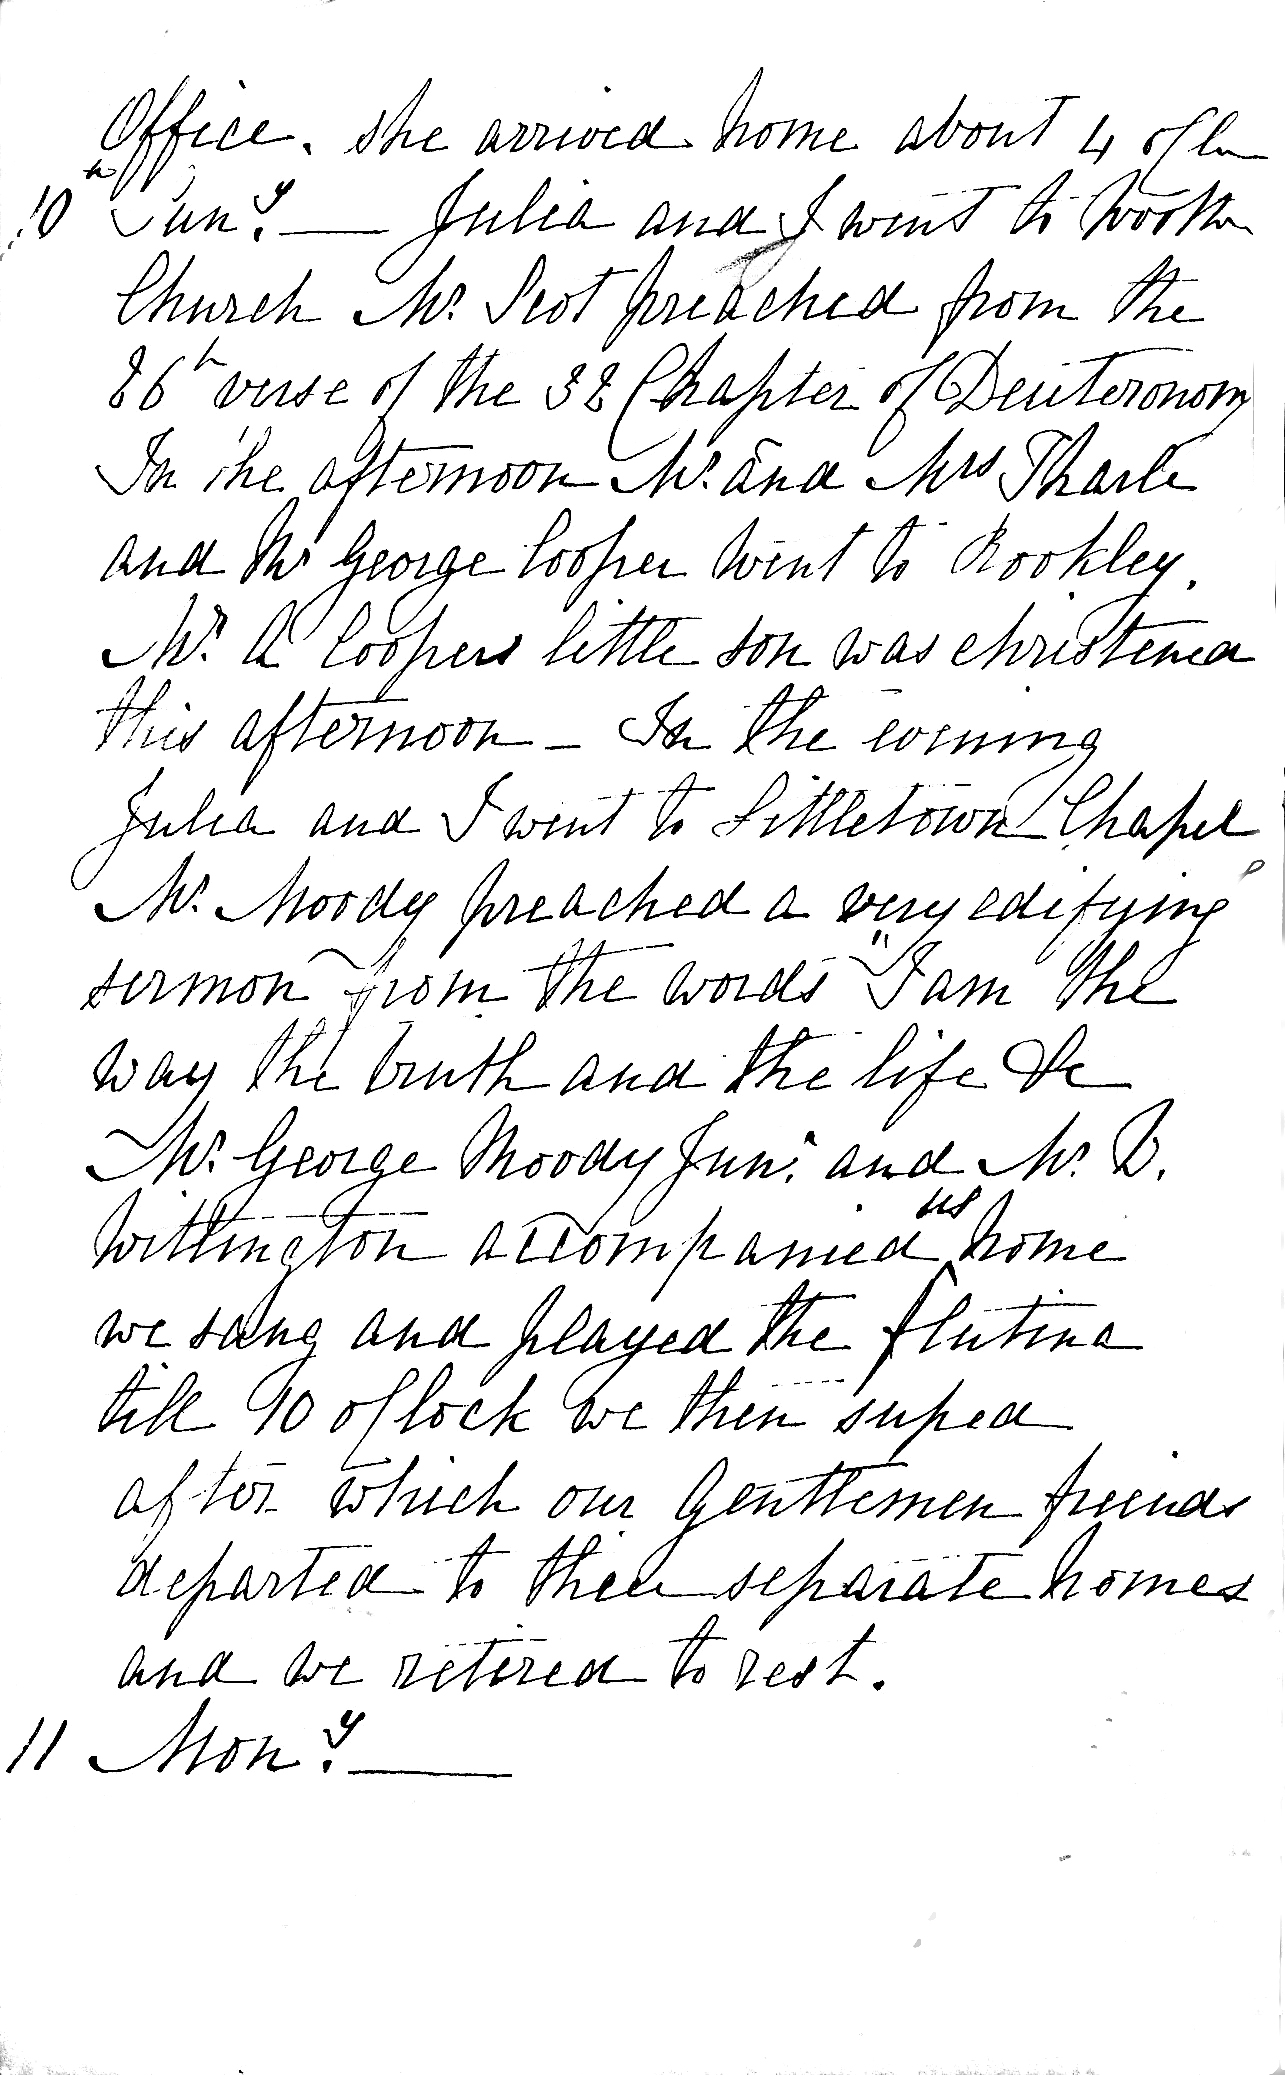 Office. she arrived home about 4 oClo
10 Sun.y — Julia and I went to Wootton
Church Mr. Scot preached from the
26th verse of the 32 Chapter of Deuteronomy
In the afternoon Mr. and Mrs Tharle
and Mr George Cooper went to Rookley.
Mr. A Coopers little son was christened
this afternoon — In the evening
Julia and I went to Littletown Chapel
Mr. Moody preached a very edifying
sermon from the words "I am the
way the truth and the life &c
Mr. George Moody Junr. and Mr. B.
Wittington accompanied us home
we sang and played the flutina
till 10 oClock we then suped
after which our Gentlemen friends
departed to their separate homes
and we retired to rest.
11 Mon.y —